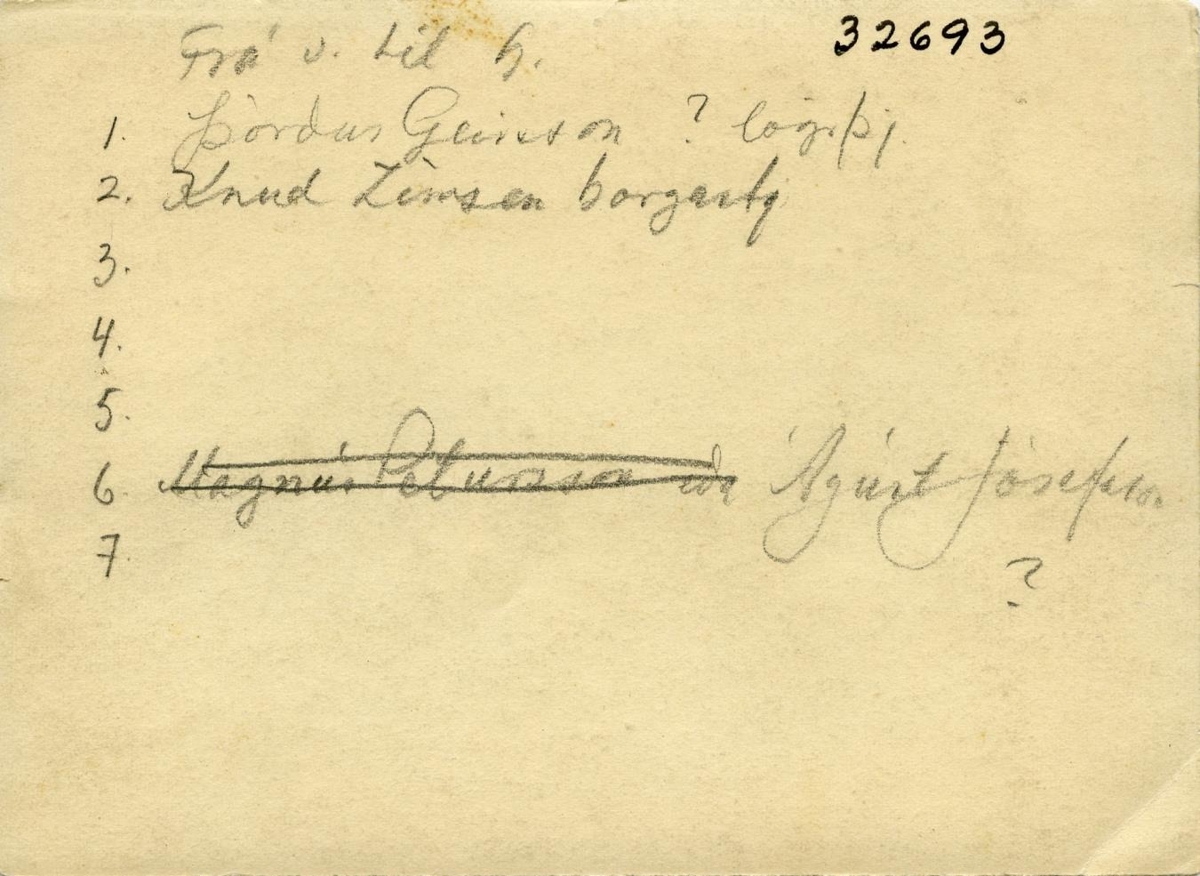 Frá v. til h. 32693
1. Þórður Geirsson ? lögrþj.
2. Knud Zimsen borgarstj
3.
4.
5.
6. Magnús Pétursson eða Ágúst Jósefsson
7.
?